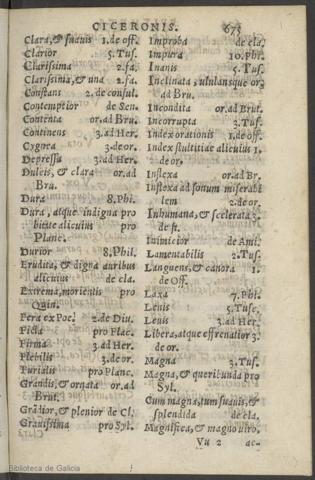 CICERONIS. 675
Clara, & suauis 1. de off.
Clarior 5. Tus.
Clarissima 2. fa.
Clarissima, & una 2. fa.
Constans 2. de consul.
Contemptior de Sen.
Contenta or. ad Bru.
Continens 3. ad Her.
Cygnea 3. de or.
Depressa 3. ad Her.
Dulcis, & clara or. ad
Bru.
Dura 8. Phil.
Dura, atque indigna pro
bitate alicuius pro
Planc.
Durior 8. Phil.
Erudita, & digna auribus
alicuius de cla.
Extrema, morientis pro
Quin.
Fera ex Poe. 2. de Diu.
Ficta pro Flac.
Firma 3. ad Her.
Flebilis 3. de or.
Furialis pro Planc.
Grandis, & ornata or. ad
Brut.
Gradior, & plenior de Cl.
Grauissima pro Syl.
Improba de cla.
Impura 10. Phi.
Inanis 5. Tus.
Inclinata, ululansque or.
ad Bru.
Incondita or. ad Brut.
Incorrupta 3. Tus.
Index orationis 1. de off.
Index stultitiae alicuius 1.
de or.
Inflexa or. ad Br.
Inflexa ad sonum miserabi
lem 2. de or.
Inhumana, & scelerata 3.
de fi.
Inimicior de Ami.
Lamentabilis 2. Tus.
Languens, & canora 1.
de Off.
Laxa 7. Phi.
Lenis 5. Tusc.
Leuis 3. ad Her.
Libera, atque effrenatior 3.
de or.
Magna 3. Tus.
Magna, & queribunda pro
Syl.
Cum magna, tum suauis, &
splendida de cla.
Magnifica, & magno uiro,
Vu 2 ac-
Biblioteca de Galicia